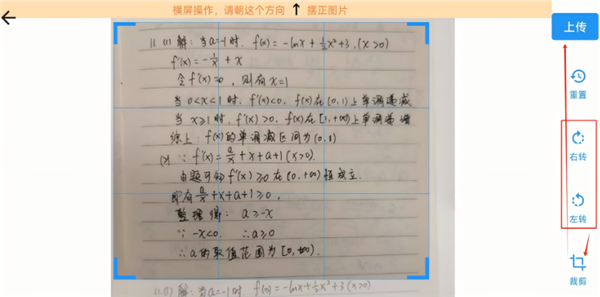 横屏操作，请朝这个方向 ↑ 摆正图片
上传
重置
右转
左转
裁剪
11. (1) 解：当a=-1时，f(x)=-lnx+½x²+3，(x>0)
f'(x)=-1/x+x
令f'(x)=0，则有x=1
当0<x<1时，f'(x)<0，f(x)在(0,1)上单调递减
当x≥1时，f'(x)>0，f(x)在[1,+∞)上单调递增
综上：f(x)的单调减区间为(0,1)
(2) ∵f'(x)=a/x+x+a+1(x>0).
由题可知f'(x)≥0在(0,+∞)恒成立.
即有a/x+x+a+1≥0，
整理得：a≥-x
∵-x<0. ∴a≥0
∴a的取值范围为[0,+∞).
11.(1) 解：当a=-1时 f(x)=-lnx+½x²+3(x>0)